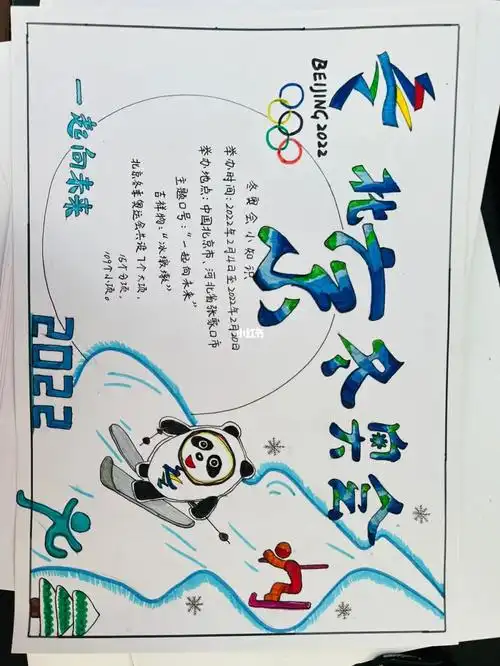 BEIJING 2022
北京冬奥会
冬奥会小知识
举办时间：2022年2月4日至2022年2月20日
举办地点：中国北京市、河北省张家口市
主题口号：“一起向未来”
吉祥物：“冰墩墩”
北京冬季奥运会共设7个大项，
15个分项，
109个小项。
一起向未来
2022
小红书